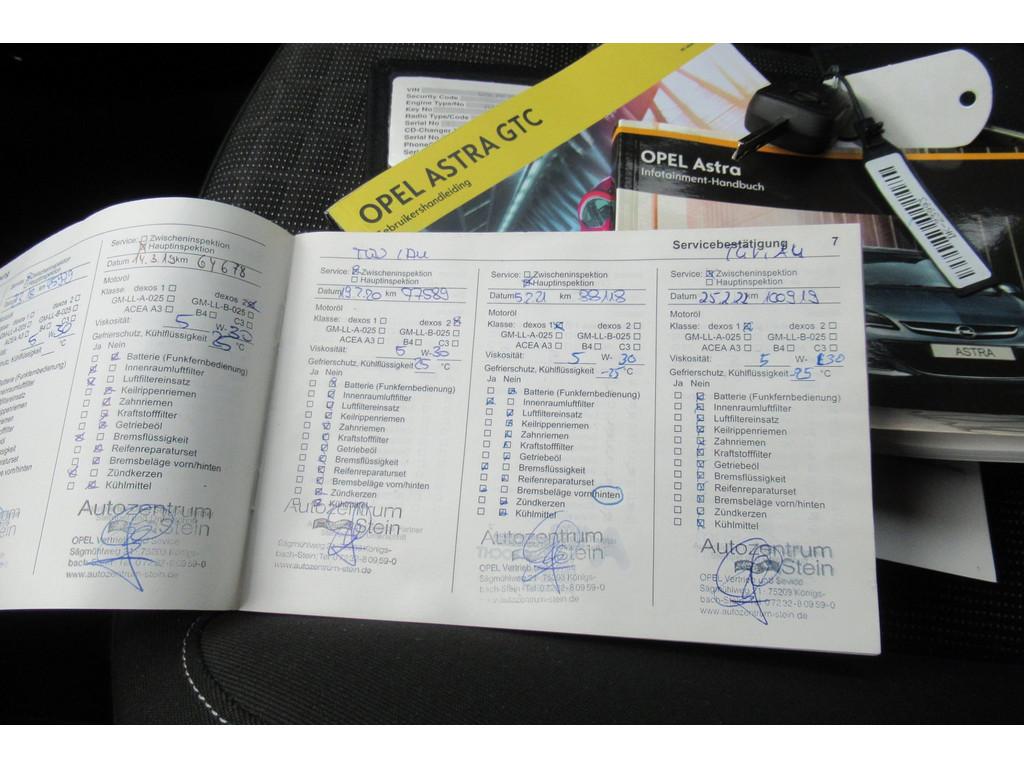 VIN
Security Code
Engine Type/No
Key No
Radio Type/Code
Serial No
CD-Changer
Serial No
OPEL ASTRA GTC
Gebruikershandleiding
OPEL Astra
Infotainment-Handbuch
ASTRA
Service: Zwischeninspektion
Hauptinspektion
Datum 14.3.19 km 67678
Motoröl
Klasse: dexos 1 dexos 2
GM-LL-A-025 GM-LL-B-025
ACEA A3 B4 C3
Viskosität: 5 W-30
Gefrierschutz, Kühlflüssigkeit 25 °C
Ja Nein
Batterie (Funkfernbedienung)
Innenraumluftfilter
Luftfiltereinsatz
Keilrippenriemen
Zahnriemen
Kraftstofffilter
Getriebeöl
Bremsflüssigkeit
Reifenreparaturset
Bremsbeläge vorn/hinten
Zündkerzen
Kühlmittel
Autozentrum
Stein
OPEL Vertrieb und Service
Sägmühlweg 21 · 75203 Königs-
bach-Stein, Tel. 0 72 32-8 09 59-0
www.autozentrum-stein.de
TÜV / AU
Service: Zwischeninspektion
Hauptinspektion
Datum 19.2.20 km 77589
Motoröl
Klasse: dexos 1 dexos 2
GM-LL-A-025 GM-LL-B-025
ACEA A3 B4 C3
Viskosität: 5 W-30
Gefrierschutz, Kühlflüssigkeit 25 °C
Ja Nein
Batterie (Funkfernbedienung)
Innenraumluftfilter
Luftfiltereinsatz
Keilrippenriemen
Zahnriemen
Kraftstofffilter
Getriebeöl
Bremsflüssigkeit
Reifenreparaturset
Bremsbeläge vorn/hinten
Zündkerzen
Kühlmittel
Autozentrum
Stein
www.autozentrum-stein.de
Service: Zwischeninspektion
Hauptinspektion
Datum 5.2.21 km 88118
Motoröl
Klasse: dexos 1 dexos 2
GM-LL-A-025 GM-LL-B-025
ACEA A3 B4 C3
Viskosität: 5 W- 30
Gefrierschutz, Kühlflüssigkeit -25 °C
Ja Nein
Batterie (Funkfernbedienung)
Innenraumluftfilter
Luftfiltereinsatz
Keilrippenriemen
Zahnriemen
Kraftstofffilter
Getriebeöl
Bremsflüssigkeit
Reifenreparaturset
Bremsbeläge vorn/hinten
Zündkerzen
Kühlmittel
Autozentrum
Stein
OPEL Vertrieb
Sägmühlweg 21 · 75203 Königs-
bach-Stein · Tel. 0 72 32-8 09 59-0
www.autozentrum-stein.de
Servicebestätigung 7
TÜV, AU
Service: Zwischeninspektion
Hauptinspektion
Datum 25.2.22 km 100919
Motoröl
Klasse: dexos 1 dexos 2
GM-LL-A-025 GM-LL-B-025
ACEA A3 B4 C3
Viskosität: 5 W- 30
Gefrierschutz, Kühlflüssigkeit -25 °C
Ja Nein
Batterie (Funkfernbedienung)
Innenraumluftfilter
Luftfiltereinsatz
Keilrippenriemen
Zahnriemen
Kraftstofffilter
Getriebeöl
Bremsflüssigkeit
Reifenreparaturset
Bremsbeläge vorn/hinten
Zündkerzen
Kühlmittel
Autozentrum
Stein
OPEL Vertrieb und Service
Sägmühlweg 21 · 75203 Königs-
bach-Stein · Tel. 0 72 32-8 09 59-0
www.autozentrum-stein.de